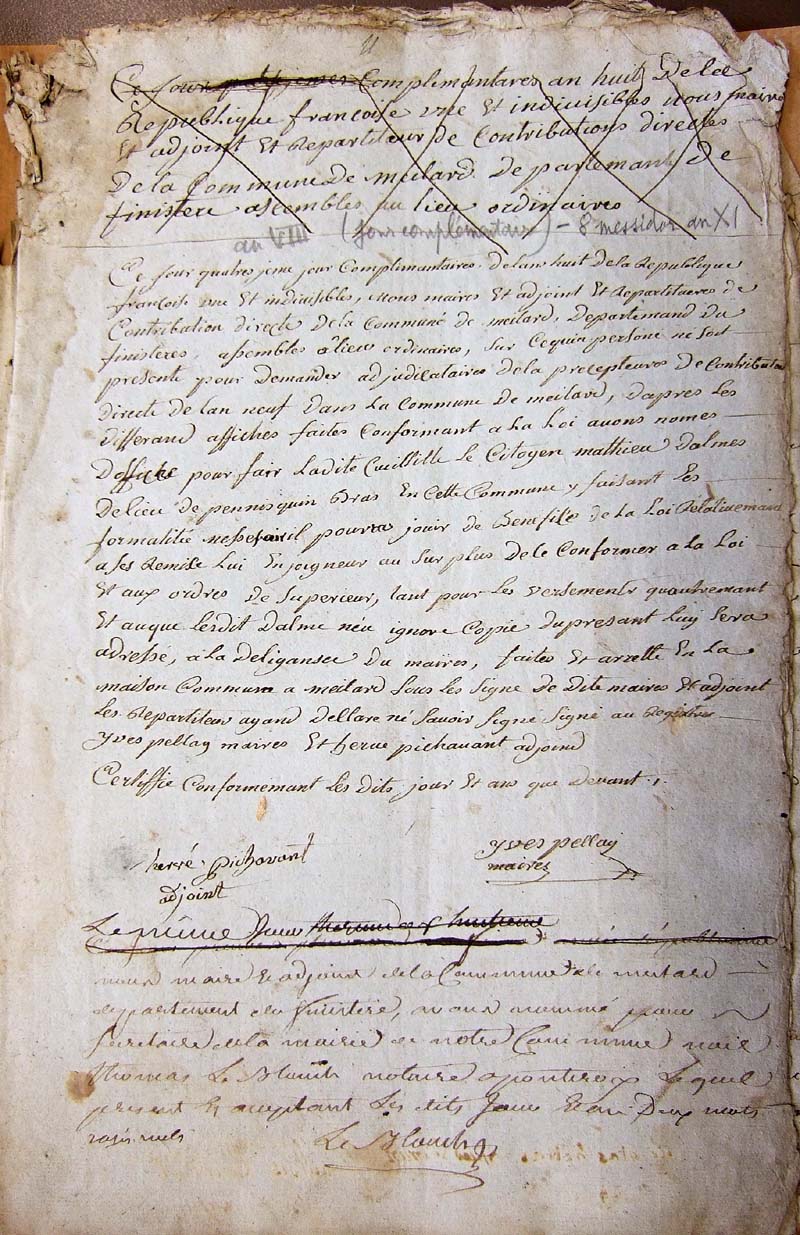 Ce jour Complimentaires an huit De la
Republique françoise une Et indiuisibles nous maire
Et adjoint Et Repartiteur De Contributions directes
De la Commune De meilard Departemant De
finistere assembles au lieu ordinaires
an VIII (jour complémentaire) - 8 messidor an XI
Ce jour quatrejeme jour Complimentaires De lans huit De la Republique
françoise une Et indiuisibles, nous maires Et adjoint Et Repartitaires De
Contribution directe De la Communé De meilard, Departemand Du
finisteres, assembles a lieu ordinaires, Sur Ce quin persone ne Soit
presente pour Demander adjudicataires De la precepteures De Contributi
Directe De lan neuf Dans la Commune De meilard, Dapres les
Differand affiches faites Conformant a La Loi auons nomes
Doffice pour fair Ladite Cueillitte le Citoyen mathieu Dalmes
De lieu De pennisquin Bras En Cette Commune y faisant les
formalitié il pourra jouir De Benefise De la Loi Relatiuemand
a ses Remise Lui Enjoigneur au Surplus De le Conformer a la Loi
Et aux ordres De Superieur, tant pour les versements quautremant
Et au que Ledit Dalme nen ignore Copie Du presant Luy Sera
adressé, a la Deligansee Du maires, faites Et arrette En La
maison Commune a meilard Sous les Signe De Dite maires Et adjoint
Les Repartiteur ayand Dellare né Savoir Signe Signé au Registres
Yves pellay maires Et herve pichavant adjoind
Certiffie Conformémant les dits jour Et ans que Devant.
hervé pichavant
adjoint
Yves pellay
maires
Le même Jour
nous maire & adjoint de la Commune de meilard
departement du finistere, avons nommé pour
Secretaire de la mairie de notre Commune
thomas Le Blouch notaire a pontcroix lequel
present & acceptant Les dits Jour Et an Deux mots
rayés nuls
Le Blouch